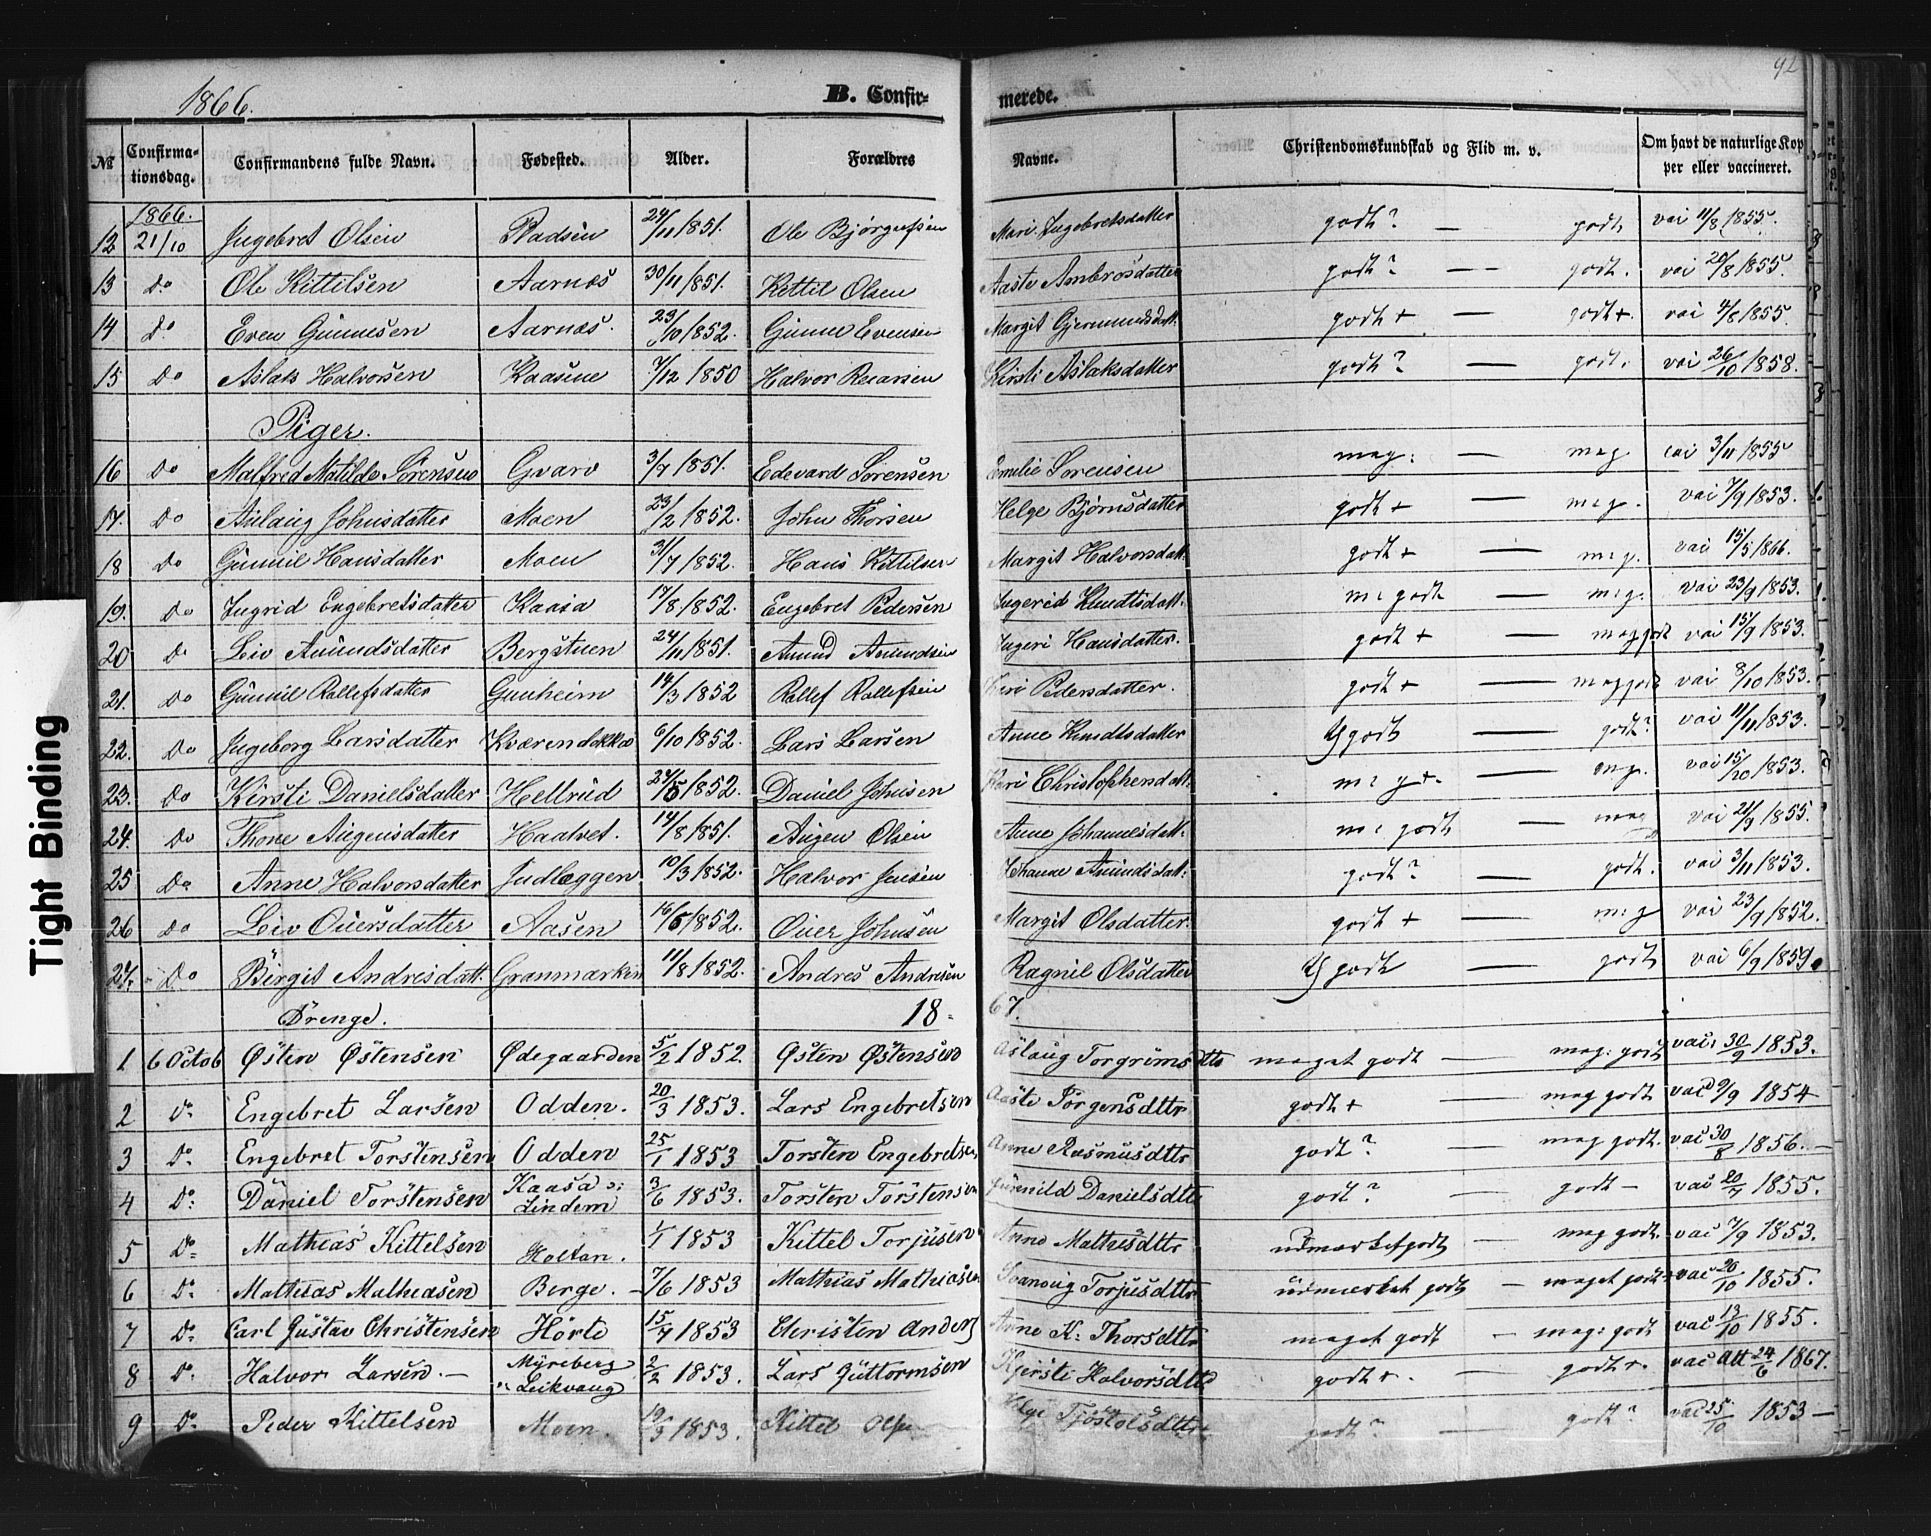 1866. B. Confirmerede. 92
№ Confirmationsdag. Confirmandens fulde Navn. Fødested. Alder. Forældres Navne. Christendomskundskab og Flid m. v. Om havt de naturlige Kopper eller vaccineret.
1866.
12 21/10 Ingebret Olsen 24/11 1851. Ole Bjørgufsen Mari Ingebretsdatter godt? — godt vai 11/8 1855.
13 Do Ole Kittilsen Aarnæs 30/11 1851. Kettil Olsen Aaste Ambrosdatter godt? — godt. vai 20/8 1855.
14 Do Even Gunnesen Aarnæs. 23/10 1852. Gunne Evensen Margit Gjermundsdatt. godt + — godt +. vai 4/8 1855.
15 Do Aslak Halvorsen Kaasene 7/12 1850 Halvor Kirsti Aslaksdatter godt? — godt. vai 26/10 1858.
Piger.
16 Do Malfred Matilde Sørensen Gvarv 3/7 1851. Edevard Sørensen Emilie Sørensen meg: — meg vai 3/11 1855
17. Do Aslaug Johnsdatter Moen 23/2 1852. John Thorsen Helge Bjørnsdatter godt + — meg. vai 7/9 1853.
18 Do Gunnil Hansdatter Moen 31/7 1852. Hans Kittilsen Margit Halvorsdatt. godt + — meg. vai 15/5 1866.
19. Do Ingrid Engebretsdatter Kaasa 17/8 1852. Engebret Pedersen Ingerid Knudtsdatt. m: godt — meg. vai 23/9 1853.
20 Do Liv Amundsdatter Bergstuen 24/11 1851. Amund Amundsen Ingeri Hansdatter. godt + — meg godt vai 15/9 1853.
21. Do Gunnil Rollefsdatter Gunheim 14/3 1852 Rollef Rollefsen Kari Pedersdatter. godt + — meg godt vai 8/10 1853.
22. Do Ingeborg Larsdatter Kværendokka 6/10 1852. Lars Larsen Anne Knudtsdatter godt — godt? vai 11/11 1853.
23. Do Kirsti Danielsdatter Heltrud 24/5 1852. Daniel Johnsen Kari Christophersdatt. m: g +. — meg. vai 15/10 1853.
24. Do Thone Augensdatter Haatvet. 14/8 1851. Augen Olsen Anne Johannesdatt: m: godt — meg vai 21/9 1855.
25 Do Anne Halvorsdatter Judlæggen 10/3 1852. Halvor Jensen Johanne Amundsdatt: godt? — godt. vai 3/11 1853.
26 Do Liv Ouersdatter Aasen 16/5 1852. Ouer Johnsen Margit Olsdatter. godt + — m: g vai 23/9 1852.
27. Do Birgit Andresdatt. Granmarken 11/8 1852. Andres Andresen Ragnil Olsdatter godt — godt vai 6/9 1859.
Drenge. 1867.
1 6 Octob Østen Østensen Ødegaarden 5/2 1852. Østen Østensen Aslaug Torgrimsdtr meget godt — meg: godt vac: 30/9 1853.
2 Do Engebret Larsen Odden. 20/3 1853. Lars Engebretsen Aaste Jørgensdttr godt + — meg godt vac 9/9 1854
3 Do Engebret Torstensen Odden 25/1 1853 Torsten Engebretsen Anne Rasmusdttr godt? — meg godt. vac 30/8 1856. —
4 Do: Daniel Torstensen Kaasa o: Lindem 3/6 1853. Torsten Torstensen Gunnild Danielsdttr godt? — godt — vac 20/7 1855.
5 Do Mathias Kittelsen Holtan. 1/1 1853 Kittel Torjusen Anne Mathisdttr udmærket godt — meg godt. vac 7/9 1853.
6 Do Mathias Mathiasen Berge. — 7/6 1853 Mathias Mathiasen Svanoug Torjusdttr udmærket godt — meget godt vac 20/10 1855.
7 Do Carl Gustav Christensen Hørte 15/7 1853 Christen Anders Anne K: Thorsdttr meget godt — meg: godt vac 13/10 1855.
8 Do Halvor Larsen. — Myreberg Leikvang 2/2 1853. Lars Guttormsen Kjersti Halvorsdttr godt +. — godt +. vac Att 24/6 1867.
9 Do Peder Kittelsen Moen. 19/9 1853. Kittel Helge Tjostolsdttr godt? — godt? vac 25/10 1853 —
Tight Binding